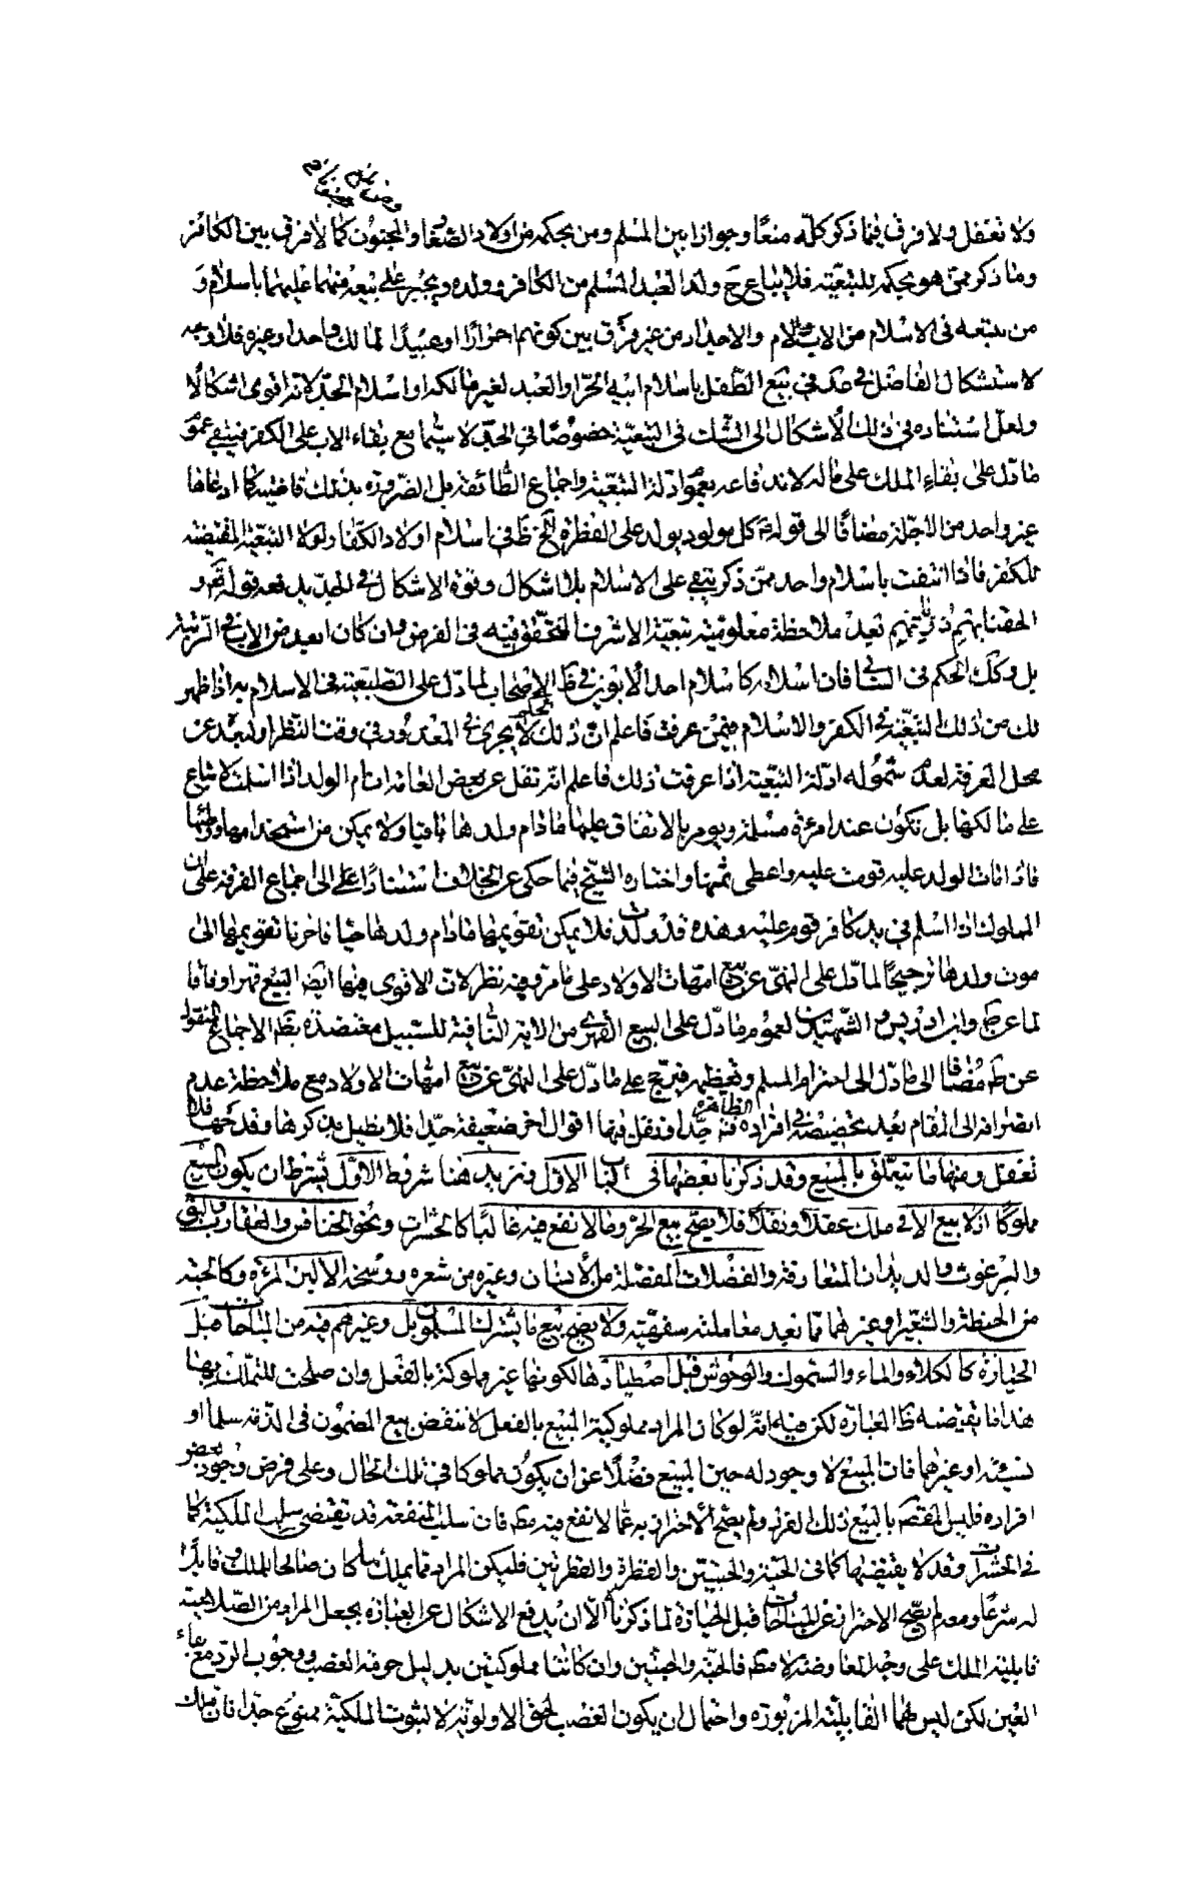 ولا تغفل ولا فرق فيما ذكر كله منعا وجوازا بين المسلم ومن بحكمه من اولاد الصغار والمجنون كما لا فرق بين الكافر
وما ذكر ممن هو بحكمه للتبعية فلا يباع ح ولد العبد المسلم من الكافر وولده ويجبر على بيعه منهما عليهما باسلام و
من يتبعه فى الاسلام من الاب والام والاجداد من غير فرق بين كونهم احرارا او عبيدا لمالك واحد او غيره فلا وجه
لاستشكال الفاضل فى عد فى بيع الطفل باسلام ابيه الحر او العبد لغير مالكه او اسلام الجد لانه اقوى اشكالا
ولعل استناده فى ذلك الاشكال الى الشك فى التبعية خصوصا فى الجد لا سيما مع بقاء الاب على الكفر فيبقى عموم
ما دل على بقاء الملك على حاله لاندفاعه بعموم ادلة التبعية واجماع الطائفة بل الضرورة بذلك كما ادعاها
غير واحد من الاجلة مضافا الى قوله ع كل مولود يولد على الفطرة الخ ظ فى اسلام اولاد الكفار لولا التبعية المقتضية
للكفر فاذا انتفت باسلام واحد ممن ذكر بقى على الاسلام بلا اشكال وقوة الاشكال فى الجد يدفعه قوله تعه و
الحقنا بهم ذريتهم بعد ملاحظة معلومية تبعية الاشرف المتحقق فيه فى الفرض وان كان ابعد من الاب فى الرتبة
بل وكك الحكم فى السابى فان اسلامه كاسلام احد الابوين فى ظ الاصحاب لما دل على التبعية فى الاسلام به اذا ظهر
لك من ذلك التبعية فى الكفر والاسلام فيمن عرفت فاعلم ان ذلك لا يجرى فى المعدود فى وقت النظر اولبعد عن
محل الفرقة لعدم شموله ادلة التبعية اذا عرفت ذلك فاعلم انه نقل عن بعض العامة ان ام الولد اذا اسلمت لا تباع
على مالكها بل تكون عند امرئة مسلمة ويومر بالانفاق عليها مادام ولدها باقيا ولا يمكن من استخدامها ووطئها
فاذا مات الولد عليه قومت عليه واعطى ثمنها واختاره الشيخ فيما حكى عن الخلاف استنادا الى اجماع الفرقة على ان
المملوك اذا اسلم فى يد كافر قوم عليه وهذه قد ولدت فلا يمكن تقويمها مادام ولدها حيا فاخرنا تقويمها الى
موت ولدها ترجيحا لما دل على النهى عن بيع امهات الاولاد على ما مر وفيه نظر لان الاقوى فيها ايضا البيع قهرا وفاقا
لما عن ط وابن ادريس والشهيدين لعموم ما دل على البيع القهرى من الاية النافية للسبيل معتضدة بظ الاجماع المنقول
عن ط مضافا الى ما دل الى احترام المسلم وتعظيمه فيرجح على ما دل على النهى عن بيع امهات الاولاد مع ملاحظة عدم
انصرافه الى المقام بعد تخصيصه فى افراده الظاهرة فيه جدا وقد نقل فيها اقوال اخر ضعيفة جدا فلا نطيل بذكرها وقدحها فلا
تغفل ومنها ما يتعلق بالمبيع وقد ذكرنا بعضها فى كتاب الاول ونزيد هنا شروط الاول يشترط ان يكون المبيع
مملوكا اذ لا بيع الا فى ملك عقلا ونقلا فلا يصح بيع الحر وما لا نفع فيه غالبا كالحشرات ونحو الخنافس والعقارب والبق
والبرغوث والديدان المتعارفة والفضلات المنفصلة من الانسان وغيره من شعره ووسخه الا لبن المرئة وكالحبة
من الحنطة والشعير وغيرهما مما يعد معاملته سفهية ولا يصح بيع ما يشترك المسلمون بل وغيرهم فيه من المباحات قبل
الحيازة كالكلاء والماء والسموك والوحوش قبل اصطيادها لكونها غير مملوكة بالفعل وان صلحت للتملك بها
هذا ما يقتضيه ظ العبارة لكن فيه انه لو كان المراد مملوكية المبيع بالفعل لانتقض ببيع المضمون فى الذمة سلما او
نسيئة او غيرهما فان المبيع لا وجود له حين المبيع فضلا عن ان يكون مملوكا فى تلك الحال وعلى فرض وجود بعض
افراده فليس المقص بالبيع ذلك الفرد ولم يصح الاحتراز به عما لا نفع فيه مط فان سلب المنفعة قد تقتضى سلب الملكية كما
فى الحشرات وقد لا يقتضيها كما فى الحبة والحبتين والقطرة والقطرتين فليكن المراد مما يملك ما كان صالحا للملك وقابلا
له شرعا ومعه لم يصح الاحتراز عن المباحات قبل الحيازة لما ذكرنا الا ان يدفع الاشكال عن العبارة بجعل المراد من الصلاحية
قابلية الملك على وجه المعاوضة لا مط فالحبة والحبتين وان كانتا مملوكتين بدليل حرمة الغصب ووجوب الرد مع بقاء
العين لكن ليس لهما القابلية المزبورة واحتمال ان يكون الغصب لحق الاولوية لا لثبوت الملكية ممنوع جدا فان ملك